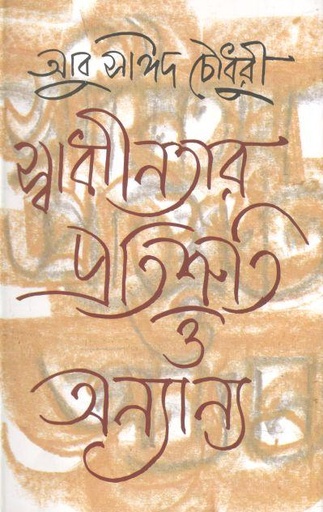 আবু সাঈদ চৌধুরী
স্বাধীনতার
প্রতিশ্রুতি
ও
অন্যান্য